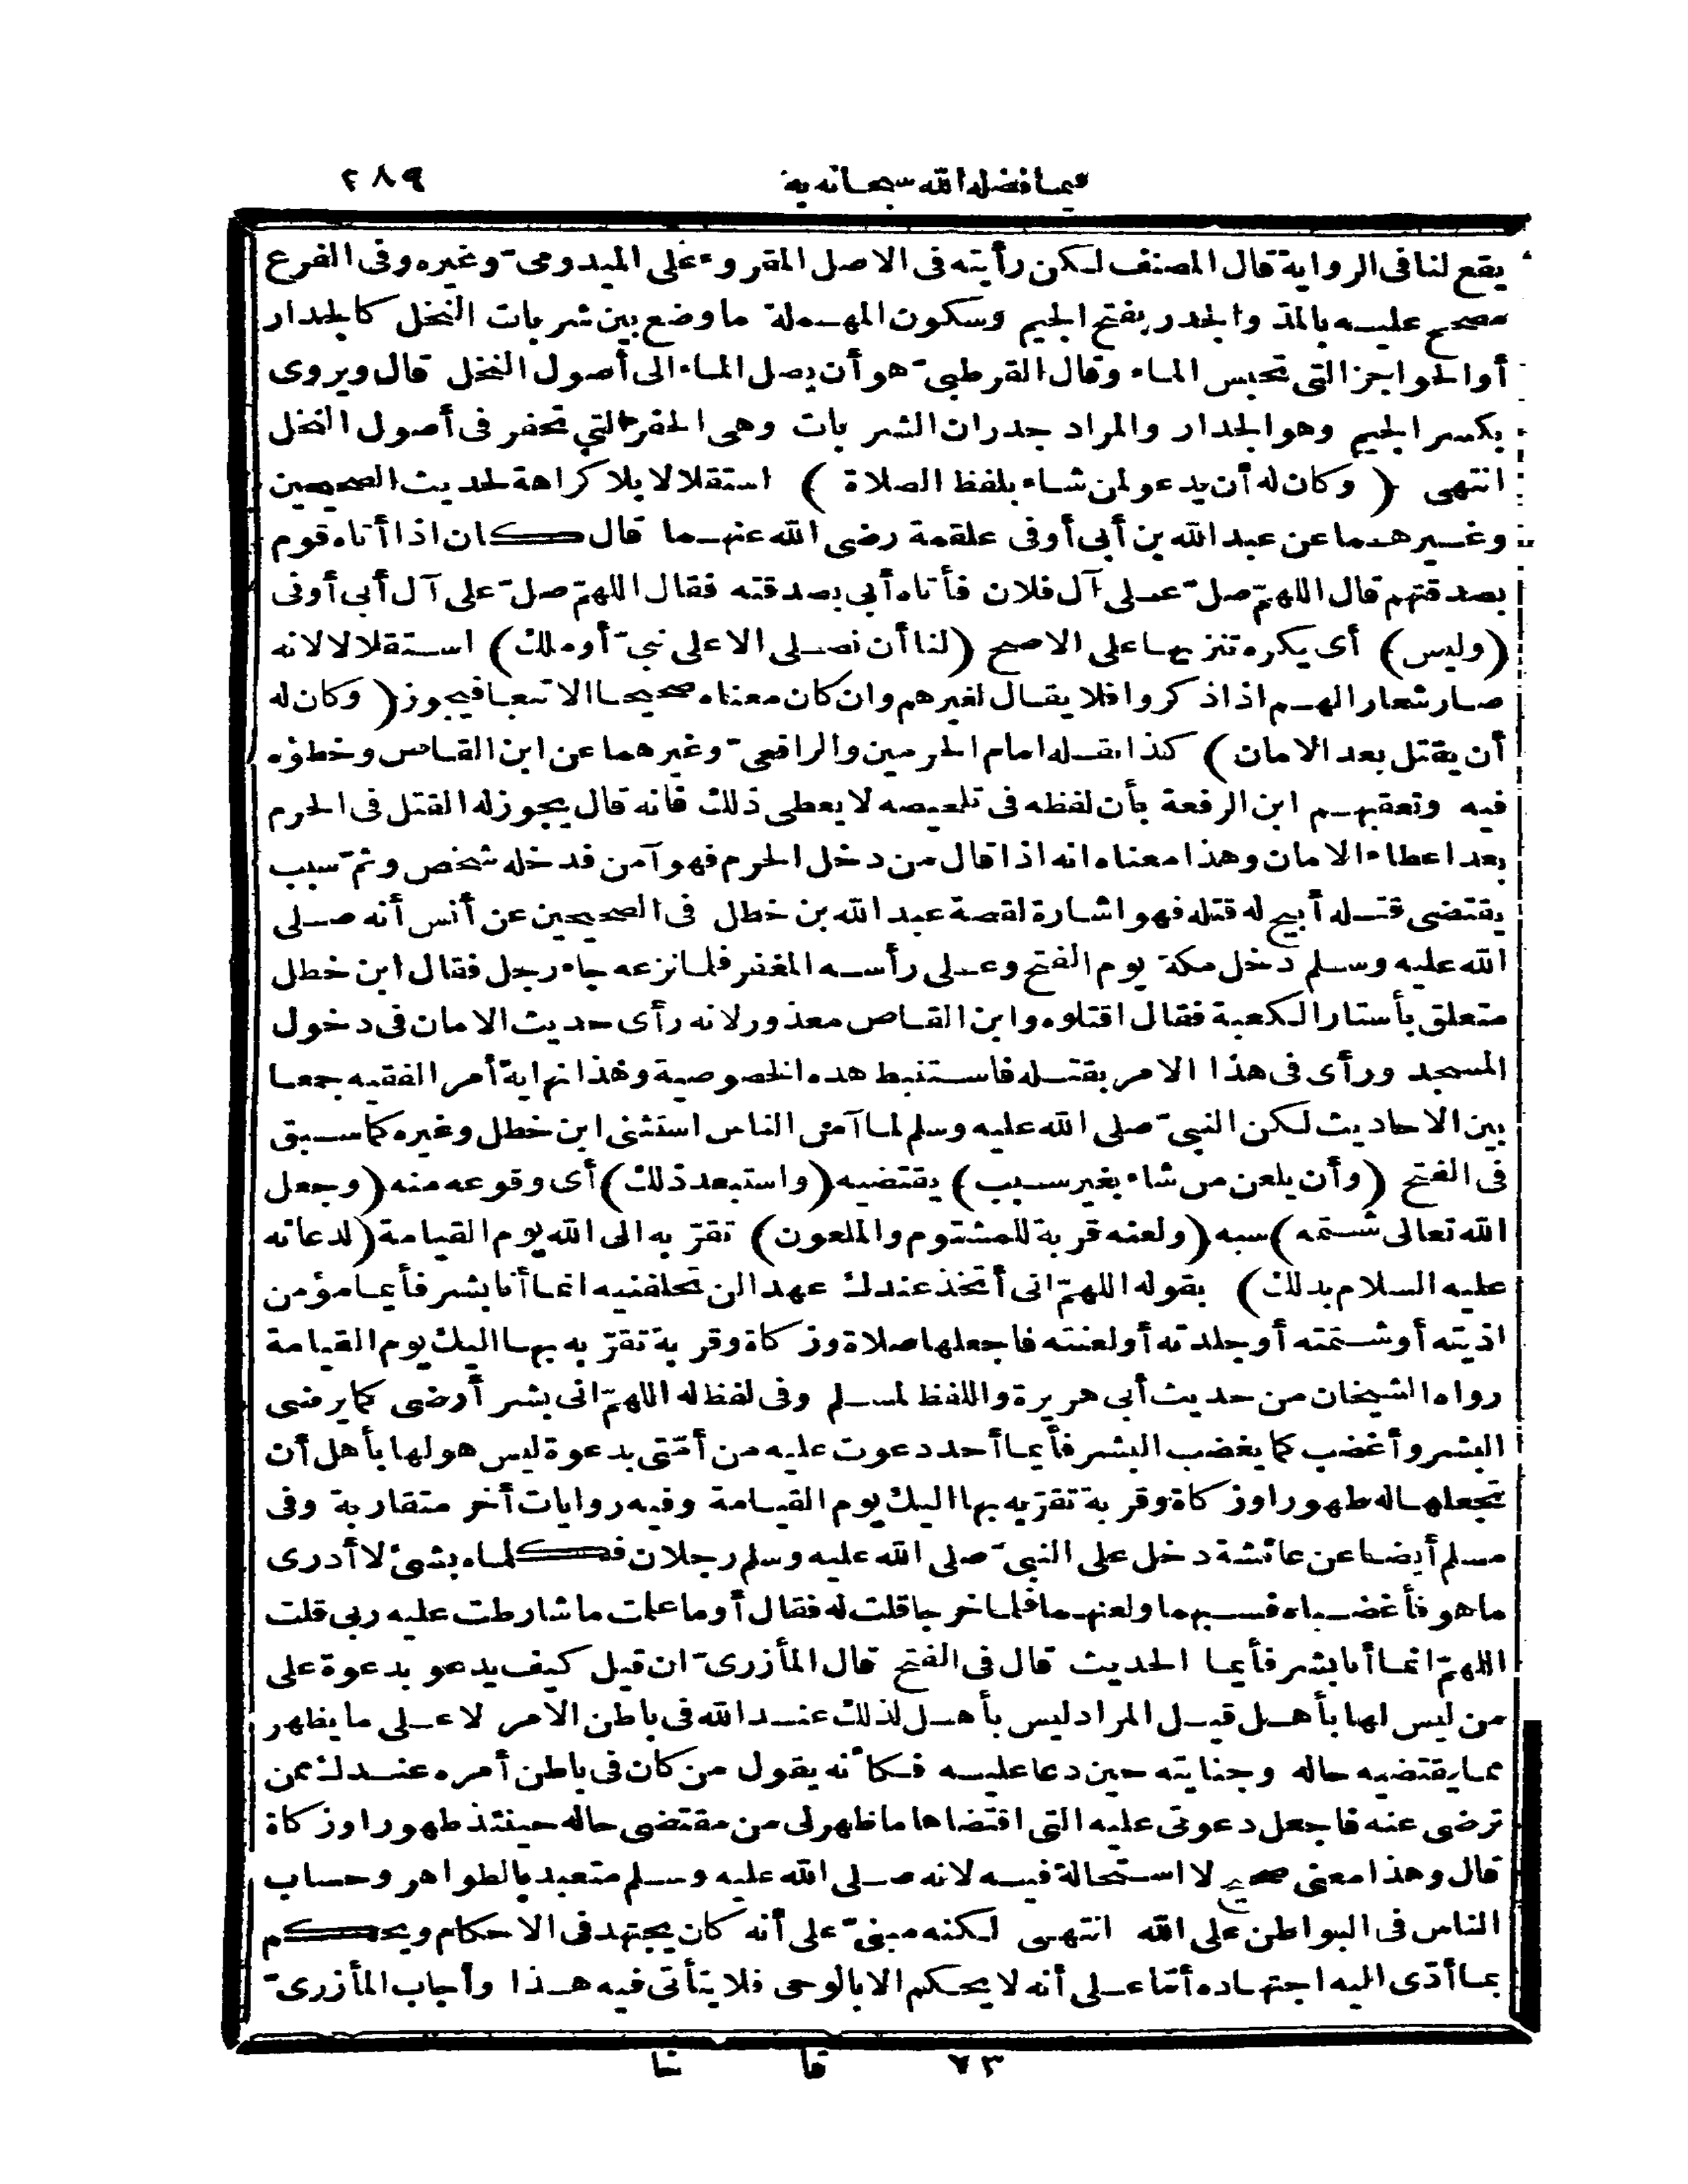 فيما فضله الله سبحانه به ٢٨٩
يقع لنا فى الرواية قال المصنف لكن رأيته فى الاصل المقروء على الميدومىّ وغيره وفى الفرع
مصحح عليه بالمدّ والجدر بفتح الجيم وسكون المهملة ما وضع بين شربات النخل كالجدار
أو الحواجز التى تحبس الماء وقال القرطبىّ هو أن يصل الماء الى أصول النخل قال ويروى
بكسر الجيم وهو الجدار والمراد جدران الشربات وهى الحفر التى تحفر فى أصول النخل
انتهى (وكان له أن يدعو لمن شاء بلفظ الصلاة) استقلالا بلا كراهة لحديث الصحيحين
وغيرهما عن عبد الله بن أبى أوفى علقمة رضى الله عنهما قال كان اذا أتاه قوم
بصدقتهم قال اللهمّ صلّ على آل فلان فأتاه أبى بصدقته فقال اللهمّ صلّ على آل أبى أوفى
(وليس) أى يكره تنزيها على الاصح (لنا أن نصلى الا على نبىّ أو ملك) استقلالا لانه
صار شعارا لهم اذا ذكروا فلا يقال لغيرهم وان كان معناه صحيحا الا تبعا فيجوز (وكان له
أن يقتل بعد الامان) كذا نقله امام الحرمين والرافعىّ وغيرهما عن ابن القاص وخطؤه
فيه وتعقبهم ابن الرفعة بأن لفظه فى تلخيصه لا يعطى ذلك فانه قال يجوز له القتل فى الحرم
بعد اعطاء الامان وهذا معناه انه اذا قال من دخل الحرم فهو آمن فدخله شخص وثمّ سبب
يقتضى قتله أبيح له قتله فهو اشارة لقصة عبد الله بن خطل فى الصحيحين عن أنس أنه صلى
الله عليه وسلم دخل مكة يوم الفتح وعلى رأسه المغفر فلما نزعه جاء رجل فقال ابن خطل
متعلق بأستار الكعبة فقال اقتلوه وابن القاص معذور لانه رأى حديث الامان فى دخول
المسجد ورأى فى هذا الامر بقتله فاستنبط هذه الخصوصية وهذا نهاية أمر الفقيه جمعا
بين الاحاديث لكن النبىّ صلى الله عليه وسلم لما آمن الناس استثنى ابن خطل وغيره كما سبق
فى الفتح (وأن يلعن من شاء بغير سبب) يقتضيه (واستبعد ذلك) أى وقوعه منه (وجعل
الله تعالى شتمه) سبه (ولعنه قربة للمشتوم والملعون) تقرّبه الى الله يوم القيامة (لدعائه
عليه السلام بذلك) بقوله اللهمّ انى أتخذ عندك عهدا لن تخلفنيه انما أنا بشر فأيما مؤمن
اذيته أو شتمته أو جلدته أو لعنته فاجعلها صلاة وزكاة وقربة تقرّبه بها اليك يوم القيامة
رواه الشيخان من حديث أبى هريرة واللفظ لمسلم وفى لفظ له اللهمّ انى بشر أرضى كما يرضى
البشر وأغضب كما يغضب البشر فأيما أحد دعوت عليه من أمّتى بدعوة ليس هو لها بأهل أن
تجعلها له طهورا وزكاة وقربة تقرّبه بها اليك يوم القيامة وفيه روايات أخر متقاربة وفى
مسلم أيضا عن عائشة دخل على النبىّ صلى الله عليه وسلم رجلان فكلماه بشئ لا أدرى
ما هو فأغضباه فسبهما ولعنهما فلما خرجا قلت له فقال أوما علمت ما شارطت عليه ربى قلت
اللهمّ انما أنا بشر فأيما الحديث قال فى الفتح قال المأزرىّ ان قيل كيف يدعو بدعوة على
من ليس لها بأهل قيل المراد ليس بأهل لذلك عند الله فى باطن الامر لا على ما يظهر
مما يقتضيه حاله وجنايته حين دعا عليه فكأنه يقول من كان فى باطن أمره عندك ممن
ترضى عنه فاجعل دعوتى عليه التى اقتضاها ما ظهر لى من مقتضى حاله حينئذ طهورا وزكاة
قال وهذا معنى صحيح لا استحالة فيه لانه صلى الله عليه وسلم متعبد بالظواهر وحساب
الناس فى البواطن على الله انتهى لكنه مبنىّ على أنه كان يجتهد فى الاحكام ويحكم
بما أدّى اليه اجتهاده أمّا على أنه لا يحكم الا بالوحى فلا يتأتى فيه هذا وأجاب المأزرىّ
٧٣ قا نا